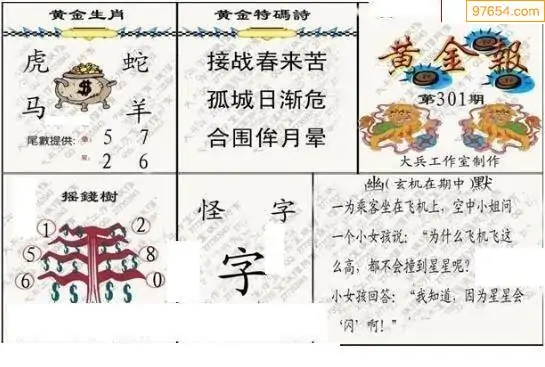 97654.com
黄金生肖
虎 蛇
马 羊
尾數提供：
5 7
2 6
黄金特碼詩
接战春来苦
孤城日渐危
合围侔月晕
黄金報
第301期
大兵工作室制作
摇錢樹
1 2
5 8
6 0
怪 字
字
幽(玄机在期中)默
一为乘客坐在飞机上，空中小姐问
一个小女孩说：“为什么飞机飞这
么高，都不会撞到星星呢？
小女孩回答：“我知道，因为星星会
‘闪’啊！”